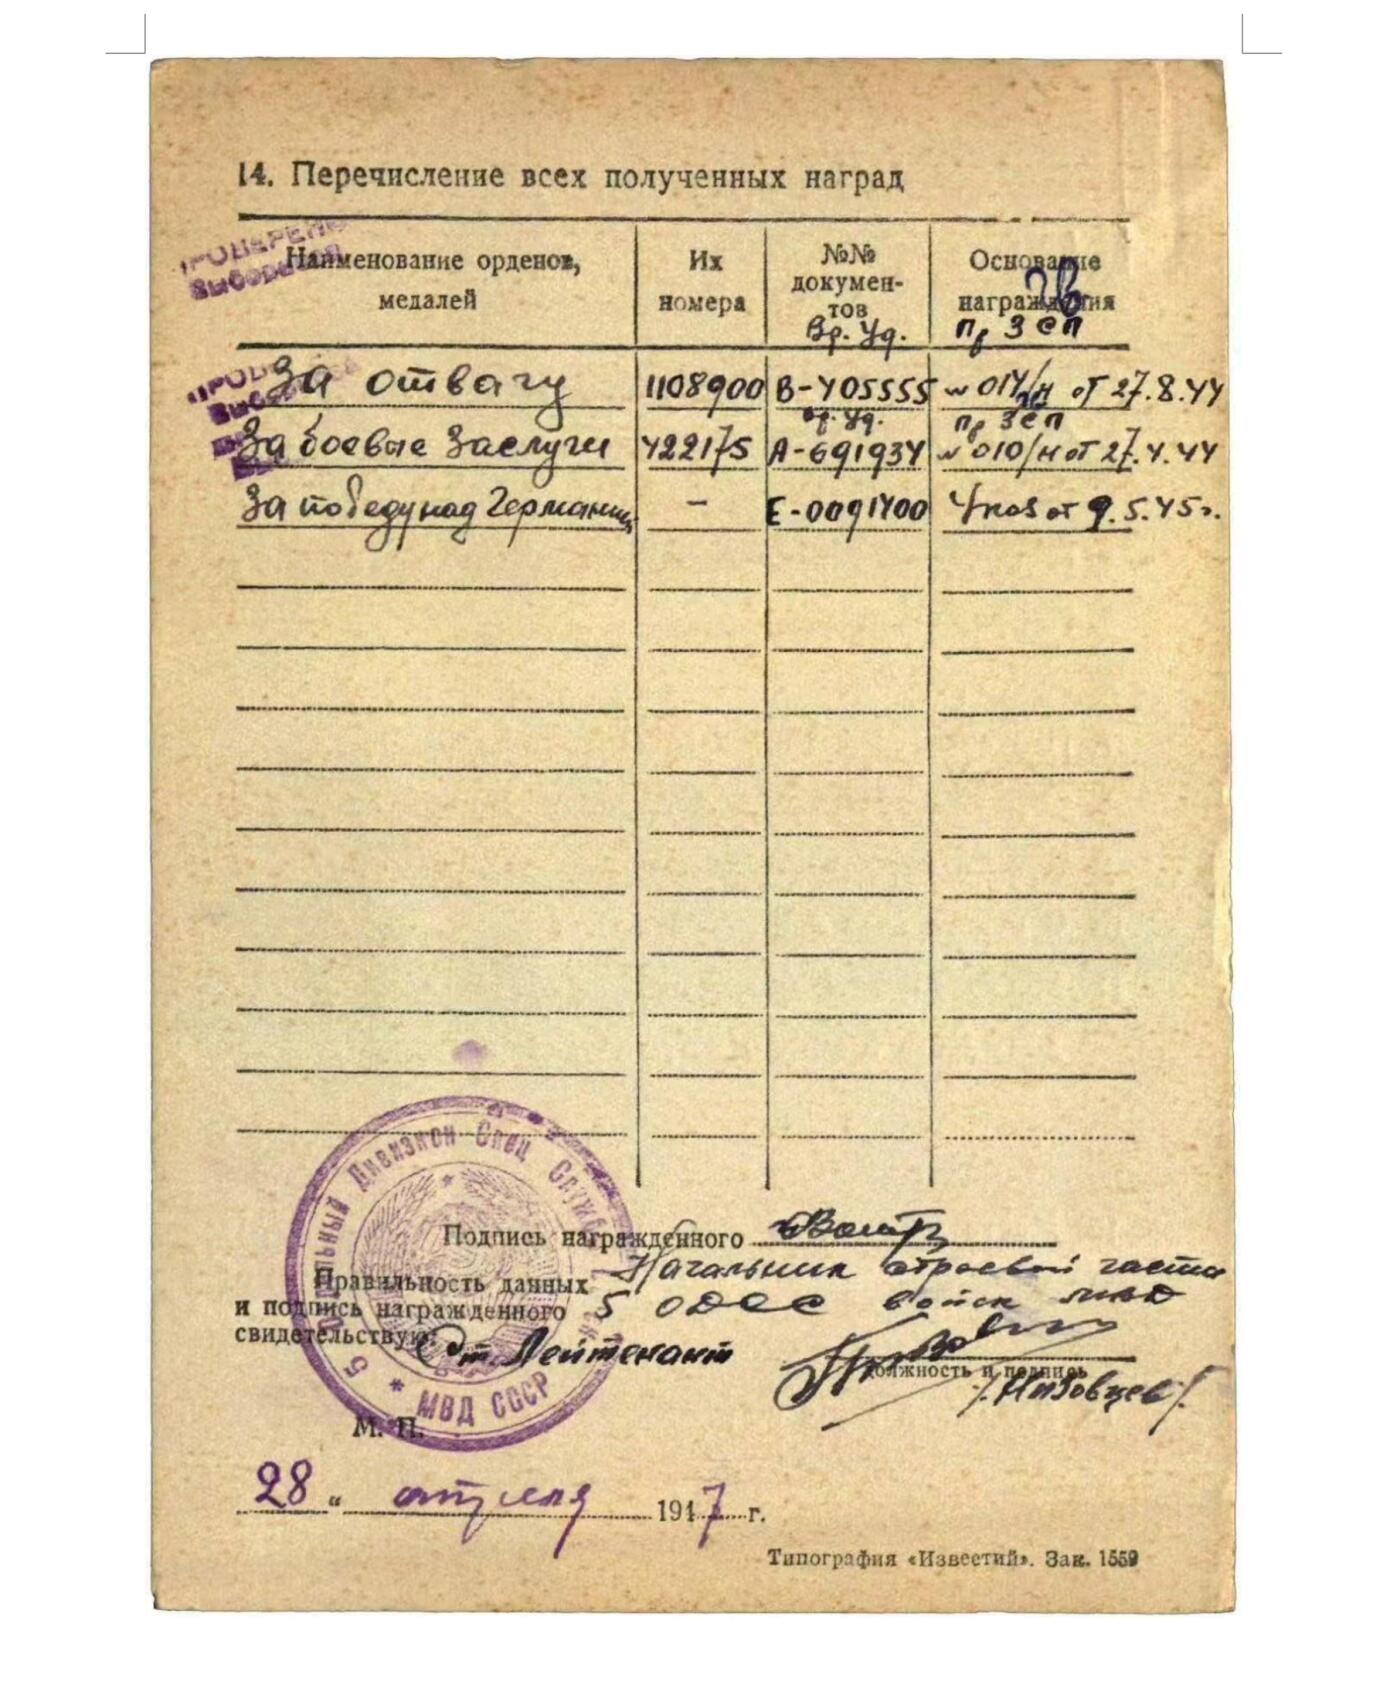 14. Перечисление всех полученных наград
ПРОВЕРЕНО
Наименование орденов, медалей
Их номера
№№ документов
Вр. Уд.
Основание награждения
Пр ЗСП
За отвагу 1108900 В-405555 № 014/н от 27.8.44
Вр. Уд. Пр ЗСП
За боевые заслуги 422175 А-691934 № 010/н от 27.4.44
За победу над Германией - Е-0091400 Указ от 9.5.45г.
Подпись награжденного
Правильность данных Начальник строевой части
и подпись награжденного 5 ОДСС войск МВД
свидетельствую: Ст. Лейтенант
Должность и подпись
/Низовцев/
5 Отдельный Дивизион Спец Службы
* МВД СССР
М. П.
28 „ апреля 1947 г.
Типография «Известий». Зак. 1559